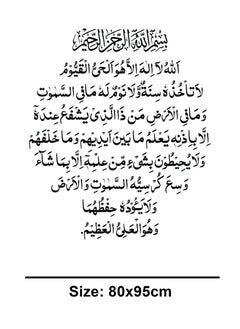 بِسْمِ اللّٰهِ الرَّحْمٰنِ الرَّحِيْمِ
اَللّٰهُ لَآ اِلٰهَ اِلَّا هُوَ اَلْحَىُّ الْقَيُّوْمُ
لَا تَأْخُذُهٗ سِنَةٌ وَّلَا نَوْمٌ لَهٗ مَا فِى السَّمٰوٰتِ
وَمَا فِى الْاَرْضِ مَنْ ذَا الَّذِىْ يَشْفَعُ عِنْدَهٗ
اِلَّا بِاِذْنِهٖ يَعْلَمُ مَا بَيْنَ اَيْدِيْهِمْ وَمَا خَلْفَهُمْ
وَلَا يُحِيْطُوْنَ بِشَىْءٍ مِّنْ عِلْمِهٖ اِلَّا بِمَا شَآءَ
وَسِعَ كُرْسِيُّهُ السَّمٰوٰتِ وَالْاَرْضَ
وَلَا يَئُوْدُهٗ حِفْظُهُمَا
وَهُوَ الْعَلِىُّ الْعَظِيْمُ.
Size: 80x95cm